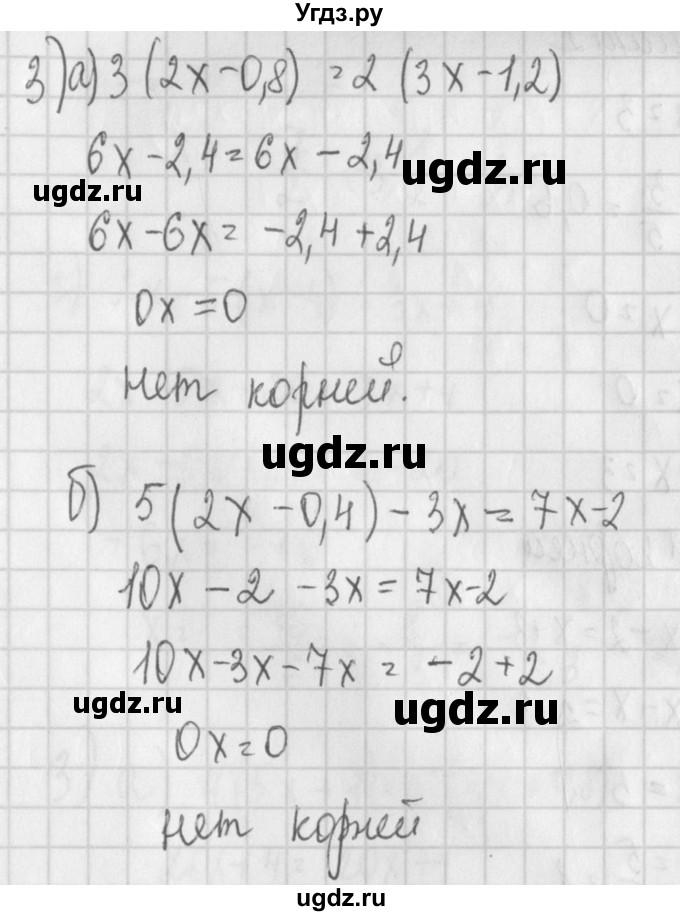 Угдз.ру
3) а) 3 (2x-0,8) = 2 (3x-1,2)
6x-2,4=6x-2,4
ugdz.ru
ugdz.ru
6x-6x= -2,4+2,4
0x=0
нет корней.
ugdz.ru
б) 5(2x-0,4)-3x=7x-2
10x-2-3x=7x-2
10x-3x-7x = -2+2
ugdz.ru
ugdz.ru
0x=0
нет корней
ugdz.ru